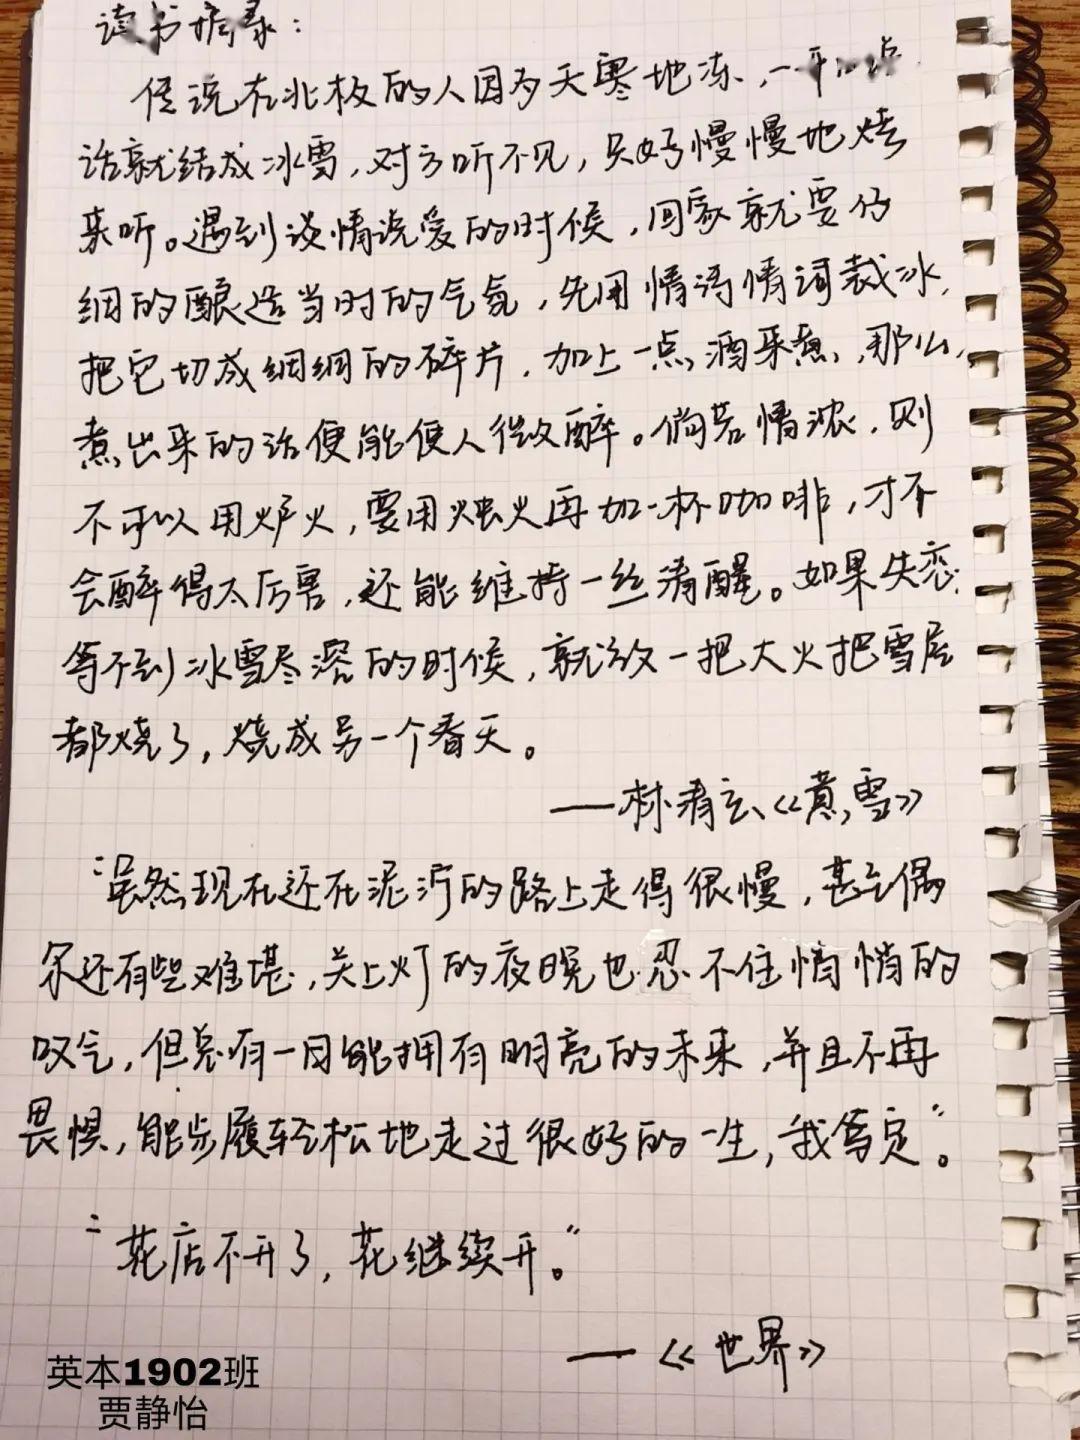 读书摘录：
传说在北极的人因为天寒地冻，一开口说
话就结成冰雪，对方听不见，只好慢慢地烤
来听。遇到谈情说爱的时候，回家就要仔
细的酿造当时的气氛，先用情诗情词裁冰，
把它切成细细的碎片，加上一点酒来煮，那么，
煮出来的话便能使人微醉。倘若情浓，则
不可以用炉火，要用烛火再加一杯咖啡，才不
会醉得太厉害，还能维持一丝清醒。如果失恋，
等不到冰雪尽溶的时候，就放一把大火把雪屋
都烧了，烧成另一个春天。
——林清玄《煮雪》
“虽然现在还在泥泞的路上走得很慢，甚至偶
尔还有些难堪，关上灯的夜晚也忍不住悄悄的
叹气，但总有一日能拥有明亮的未来，并且不再
畏惧，能步履轻松地走过很好的一生，我笃定”。
“花店不开了，花继续开。”
——《世界》
英本1902班
贾静怡